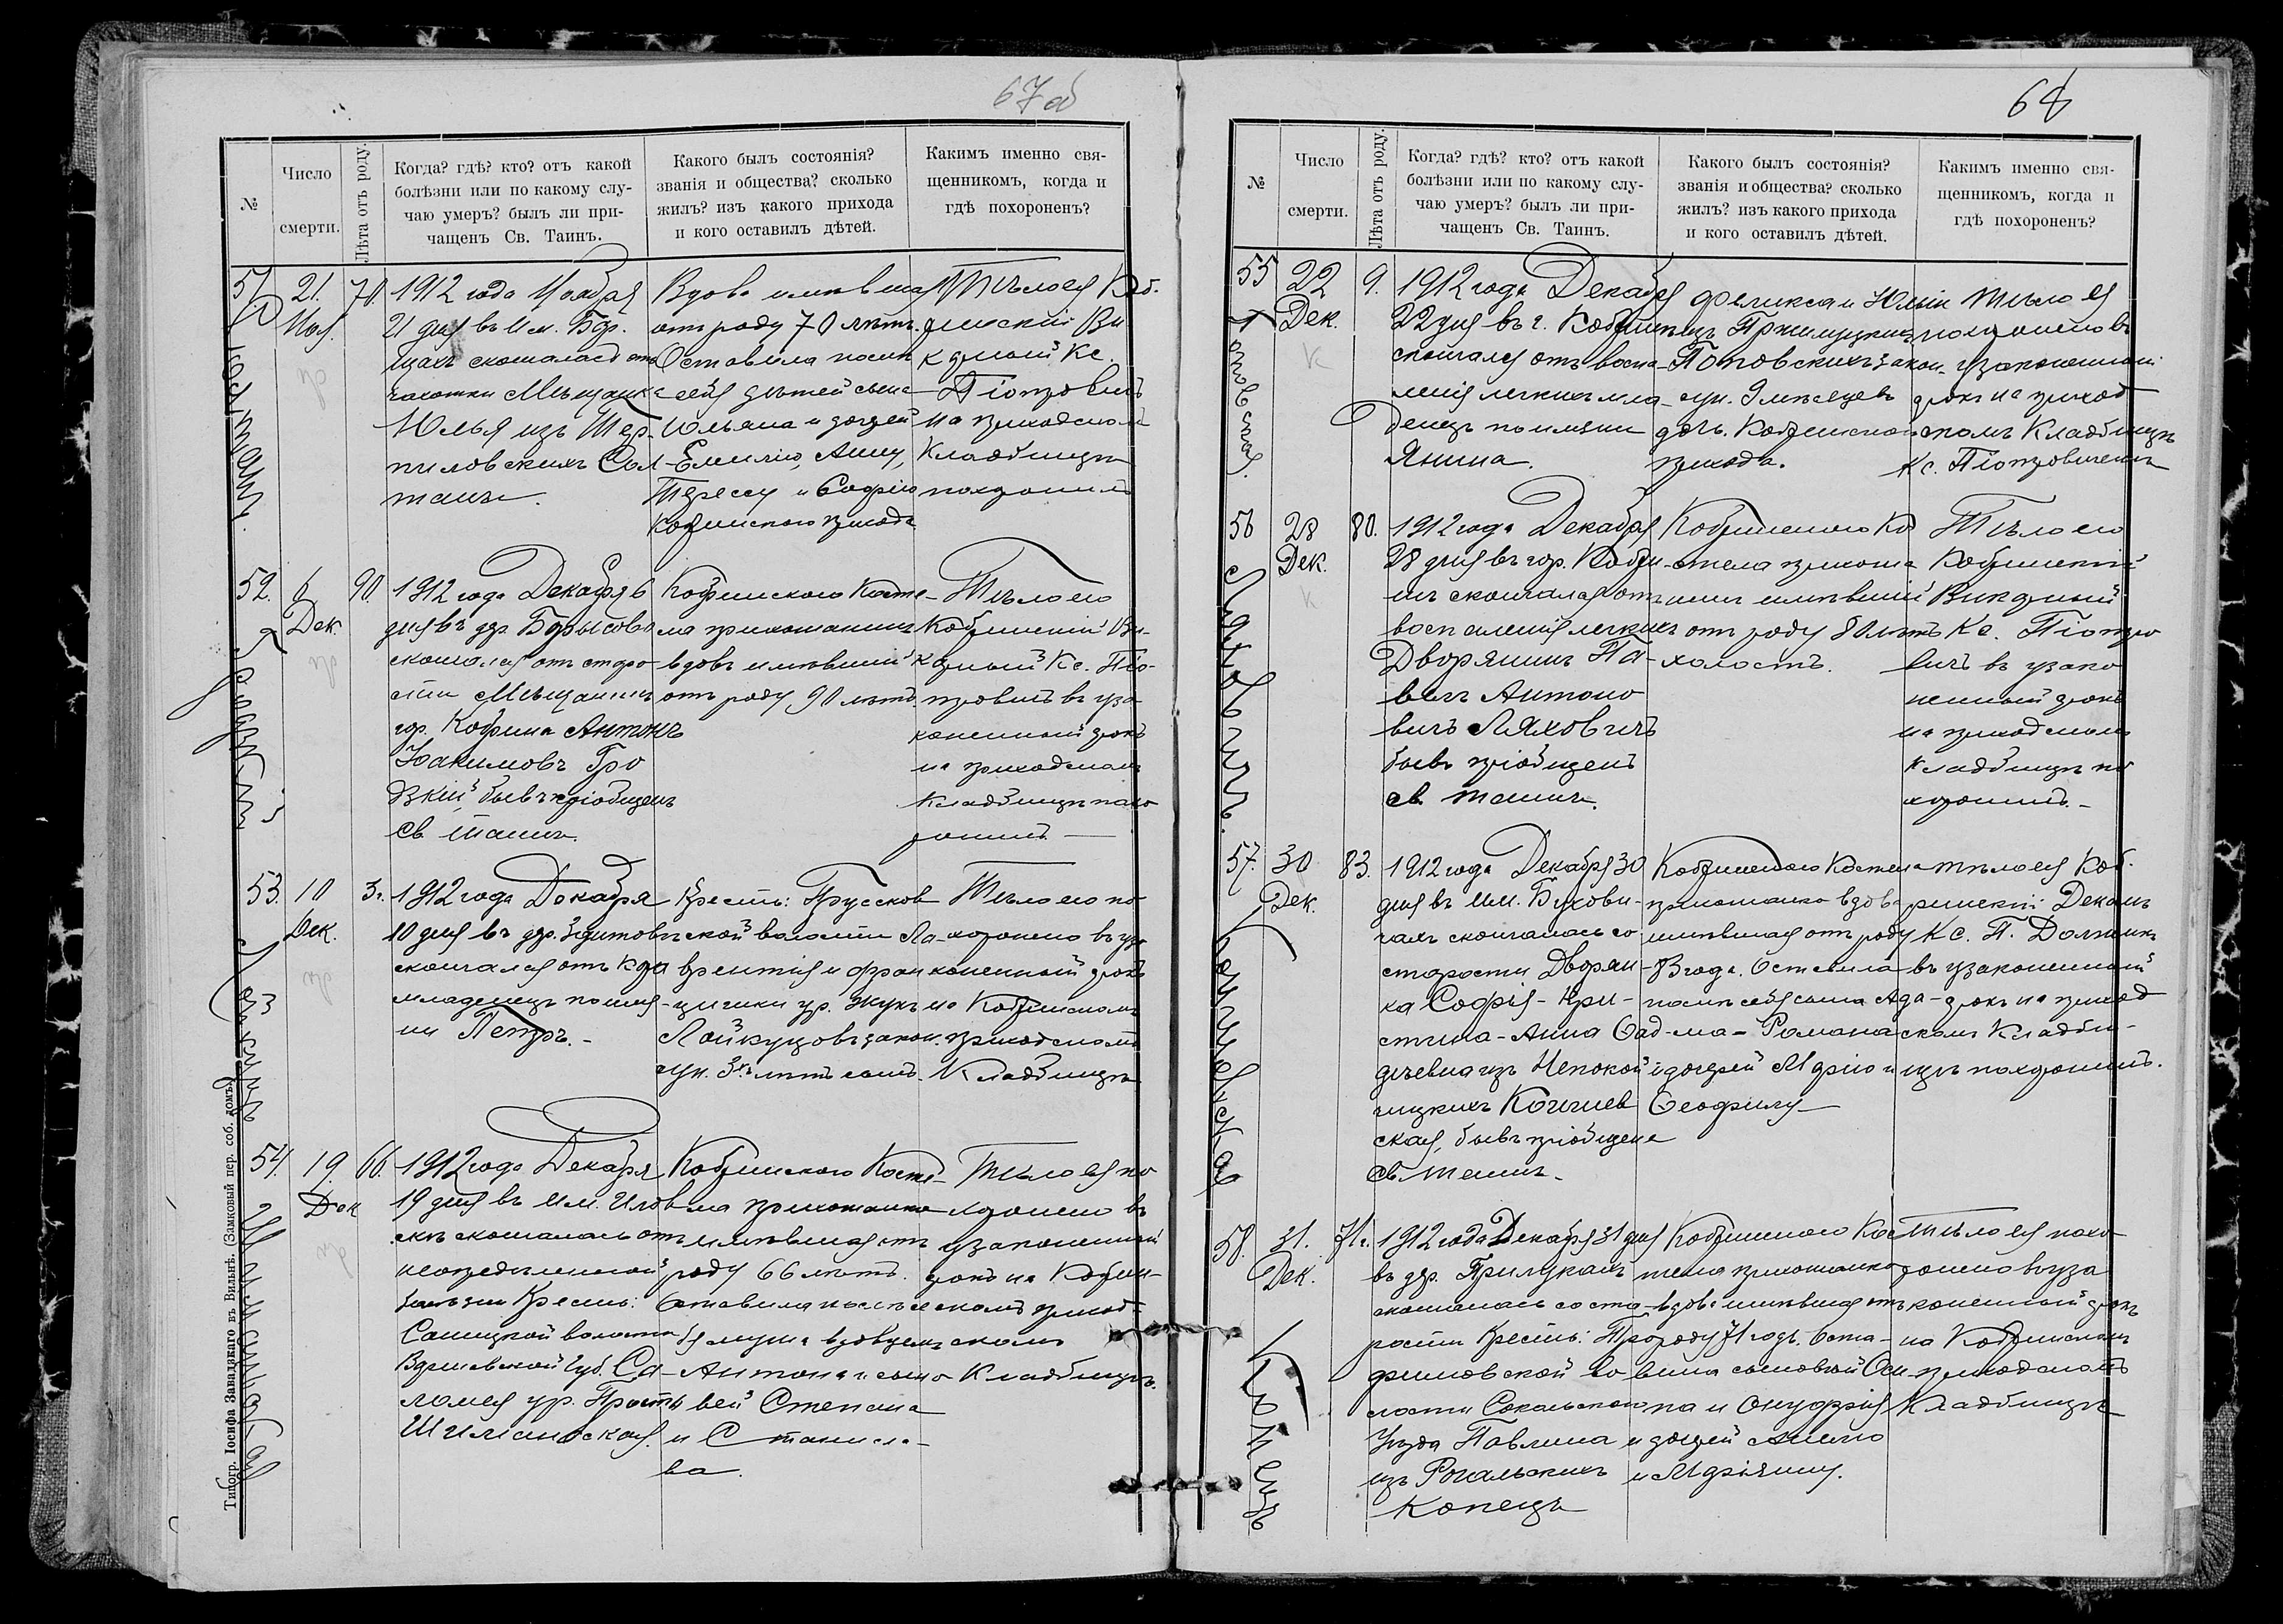 67 об
№
Число
смерти.
Лѣта отъ роду.
Когда? гдѣ? кто? отъ какой
болѣзни или по какому слу-
чаю умеръ? былъ ли при-
чащенъ Св. Таинъ.
Какого былъ состоянія?
званія и общества? сколько
жилъ? изъ какого прихода
и кого оставилъ дѣтей.
Каким именно свя-
щенникомъ, когда и
гдѣ похороненъ?
51
21.
Ноя.
70.
1912 года Ноября
21 дня въ им.
скончалась отъ
чахотки Мѣщанка
Юлья изъ
Вдова имѣвшая
отъ роду 70 лѣтъ.
Оставила послѣ
себя дѣтей сына
Юльяна и дочерей
Емилію, Анну,
Терессу и Софію
Кобринскаго прихода
Тѣло ея Коб-
ринскій Ви
карный Кс.
Піотровичъ
на приходскомъ
Кладбищѣ
похоронилъ
52.
6
Дек.
90.
1912 года Декабря 6
дня въ дер. Борысово
скончался отъ старо-
сти Мѣщанинъ
гор. Кобрина Антонъ
Іоакимовъ Гро
дзкій бывъ пріобщенъ
св таинъ.
Кобринскаго Косте-
ла прихожанинъ
вдовъ имѣвшій
отъ роду 90 лѣтъ.
Тѣло его
Кобринскій Ви-
карный Кс. Піо-
тровичъ въ уза-
коненный срокъ
на приходскомъ
Кладбищѣ похо
ронилъ —
53.
10
Дек.
3.
1912 года Декабря
10 дня въ дер. Здитовѣ
скончался отъ
младенецъ по име-
ни Петръ. -
Крестъ: Прусков
ской волости Ла-
врентія и Фран
цишки ур. Жукъ
Лойкуцовъ закон.
суп. 3хъ лѣтъ сынъ.
Тѣло его по
хоронено въ уза
коненный срокъ
на Кобринскомъ
приходскомъ
Кладбищѣ
54.
19.
Дек
66.
1912 года Декабря
19 дня въ им. Илов
скѣ скончалась отъ
неопредѣленной
болѣзни Крестъ:
волости
Губ. Са-
ломея ур.
Шиманская.
Кобринскаго Косте-
ла прихожанка
имѣвшая отъ
роду 66 лѣтъ.
Оставила послѣ се
бя мужа вдовцемъ
Антона и сыно
вей Степана
и Станисла-
ва.
Тѣло ея по
хоронено въ
узаконенный
срокъ на Кобрин-
скомъ приход-
скомъ
Кладбищѣ.
Типогр. Іосифа Завадзкаго въ Вильнѣ. (Замковый пер. соб. домъ)
68
№
Число
смерти.
Лѣта отъ роду.
Когда? гдѣ? кто? отъ какой
болѣзни или по какому слу-
чаю умеръ? былъ ли при-
чащенъ Св. Таинъ.
Какого былъ состоянія?
званія и общества? сколько
жилъ? изъ какого прихода
и кого оставилъ дѣтей.
Какимъ именно свя-
щенникомъ, когда и
гдѣ похороненъ?
55
22
Дек.
9.
1912 года Декабря
22 дня въ г. Кобринѣ
скончался отъ воспа-
ленія легкихъ мла-
денецъ по имени
Янина.
Феликса и Юліи
изъ
закон-
суп. 9 мѣсяцевъ
дочь. Кобринскаго
прихода.
Тѣло ея
похоронено въ
узаконенный
срокъ на приход
скомъ Кладбищѣ
Кс. Піотровичемъ
56
28
Дек.
80.
1912 года Декабря
28 дня въ гор. Кобри-
нѣ скончался отъ
воспаленія легкихъ
Дворянинъ Па-
велъ Антоно
вичъ Ляховичъ
бывъ пріобщенъ
св. таинъ.
Кобринскаго Ко
стела прихожа
нинъ имѣвшій
отъ роду 80 лѣтъ
холостъ.
Тѣло его
Кобринскій
Викарный
Кс. Піотро
вичъ въ узако
ненный срокъ
на приходскомъ
кладбищѣ по
хоронилъ. -
Ляховичъ.
57.
30
Дек.
83.
1912 года Декабря 30
дня въ им. Бухови-
чахъ скончалась со
старости Дворян-
ка Софія-Кри-
стина-Анна Фад-
деевна изъ Непокой
чицкихъ Кончев
ская, бывъ пріобщена
св таинъ.
Кобринскаго Костела
прихожанка вдова
имѣвшая отъ роду
83 года. Оставила
послѣ себя сына Ада-
ма-Романа
и дочерей Марію и
Теофилу
Тѣло ея Коб-
ринскій Деканъ
Кс. П.
въ узаконенный
срокъ на приход
скомъ Кладби-
щѣ похоронилъ.
58.
31.
Дек.
71.
1912 года Декабря 31 дня
въ дер. Прилукахъ
скончалась со ста-
рости Крестъ:
во
лости Сокальскаго
Уѣзда Павлина
изъ Рогальскихъ
Копецъ
Кобринскаго Кос
тела прихожанка
вдова имѣвшая отъ
роду 71 годъ. Оста-
вила сыновей Оси-
па и Онуфрія
и дочерей Анелю
и Маріянну.
Тѣло ея похо
ронено въ уза
коненный срокъ
на Кобринскомъ
приходскомъ
Кладбищѣ
Копецъ